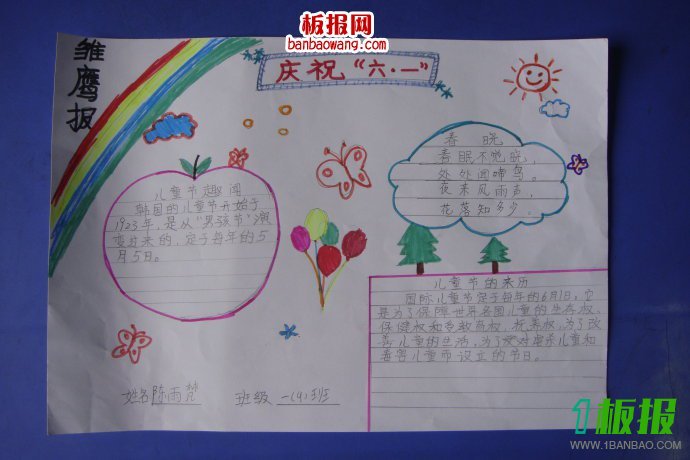 板报网
banbaowang.com
雏鹰报
庆祝“六·一”
春 晓
春眠不觉晓，
处处闻啼鸟。
夜来风雨声，
花落知多少。
儿童节趣闻
韩国的儿童节开始于
1923年，是从“男孩节”演
变过来的，定于每年的5
月5日。
儿童节的来历
国际儿童节定于每年的6月1日，它
是为了保障世界各国儿童的生存权、
保健权和受教育权、抚养权，为了改
善儿童的生活，为了反对虐杀儿童和
毒害儿童而设立的节日。
姓名陈雨梵 班级 一(4)班
1板报
WWW.1BANBAO.COM